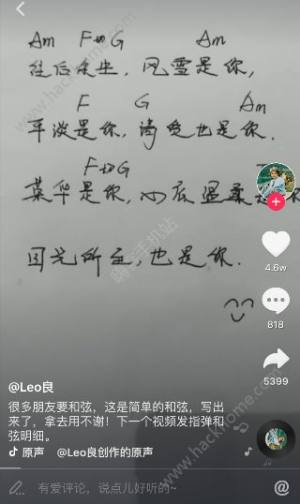 Am F→G Am
往后余生, 风雪是你,
F G Am
平淡是你, 清贫也是你.
F→G
荣华是你, 心底温柔是你
目光所至, 也是你.
4.6w
818
5399
@Leo良
很多朋友要和弦，这是简单的和弦，写出
来了，拿去用不谢！下一个视频发指弹和
弦明细。
原声 @Leo良创作的原声
有爱评论，说点儿好听的~
@
嗨客手机站
www.hackhome.com